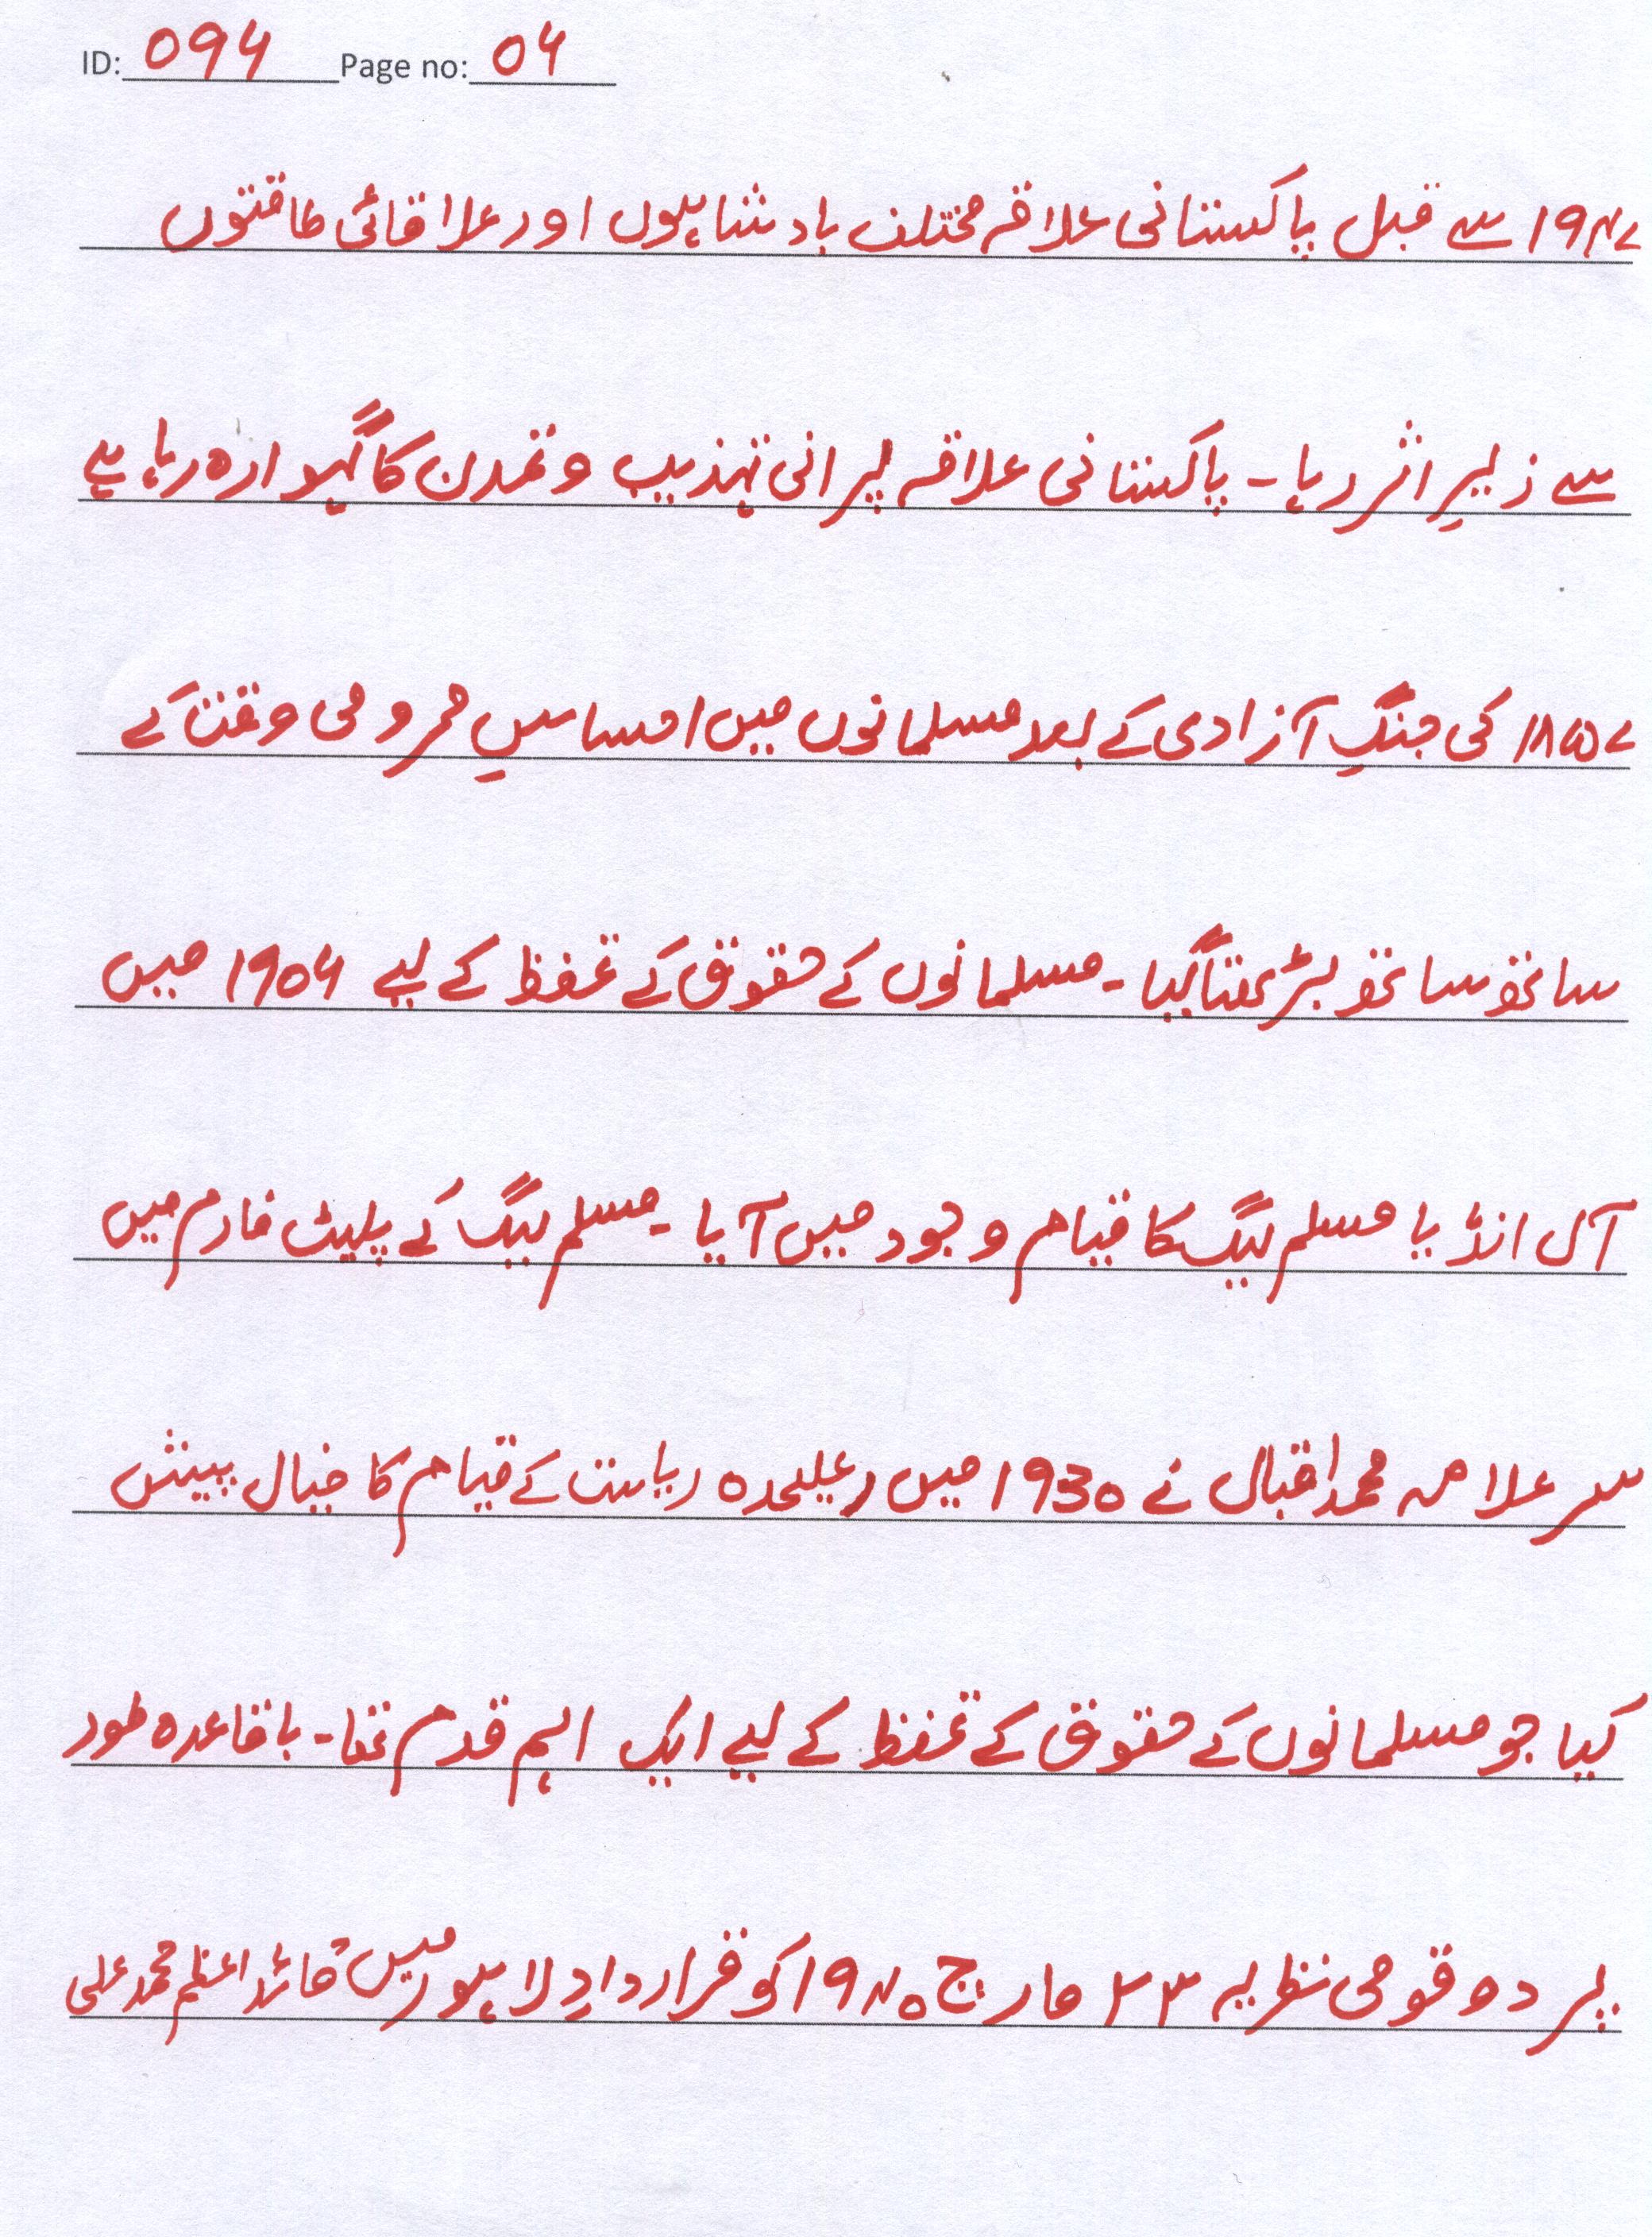 ID: 094 Page no: 04
۱۹۴۷ سے قبل پاکستانی علاقہ مختلف بادشاہوں اور علاقائی طاقتوں
سے زیرِ اثر رہا۔ پاکستانی علاقہ پرانی تہذیب و تمدن کا گہوارہ رہا ہے
۱۸۵۷ کی جنگِ آزادی کے بعد مسلمانوں میں احساسِ محرومی وقت کے
ساتھ ساتھ بڑھتا گیا۔ مسلمانوں کے حقوق کے تحفظ کے لیے ۱۹۰۶ میں
آل انڈیا مسلم لیگ کا قیام وجود میں آیا۔ مسلم لیگ کے پلیٹ فارم میں
سر علامہ محمد اقبال نے 1930 میں علیحدہ ریاست کے قیام کا خیال پیش
کیا جو مسلمانوں کے حقوق کے تحفظ کے لیے ایک اہم قدم تھا۔ باقاعدہ طور
پر دو قومی نظریہ ۲۳ مارچ ۱۹۴۰ کو قراردادِ لاہور میں قائد اعظم محمد علی